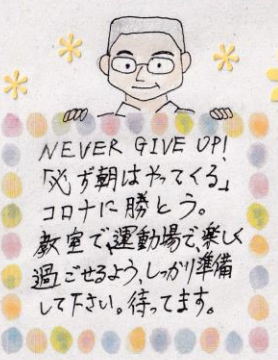 NEVER GIVE UP!
「必ず朝はやってくる」
コロナに勝とう。
教室で、運動場で、楽しく
過ごせるよう、しっかり準備
して下さい。待ってます。